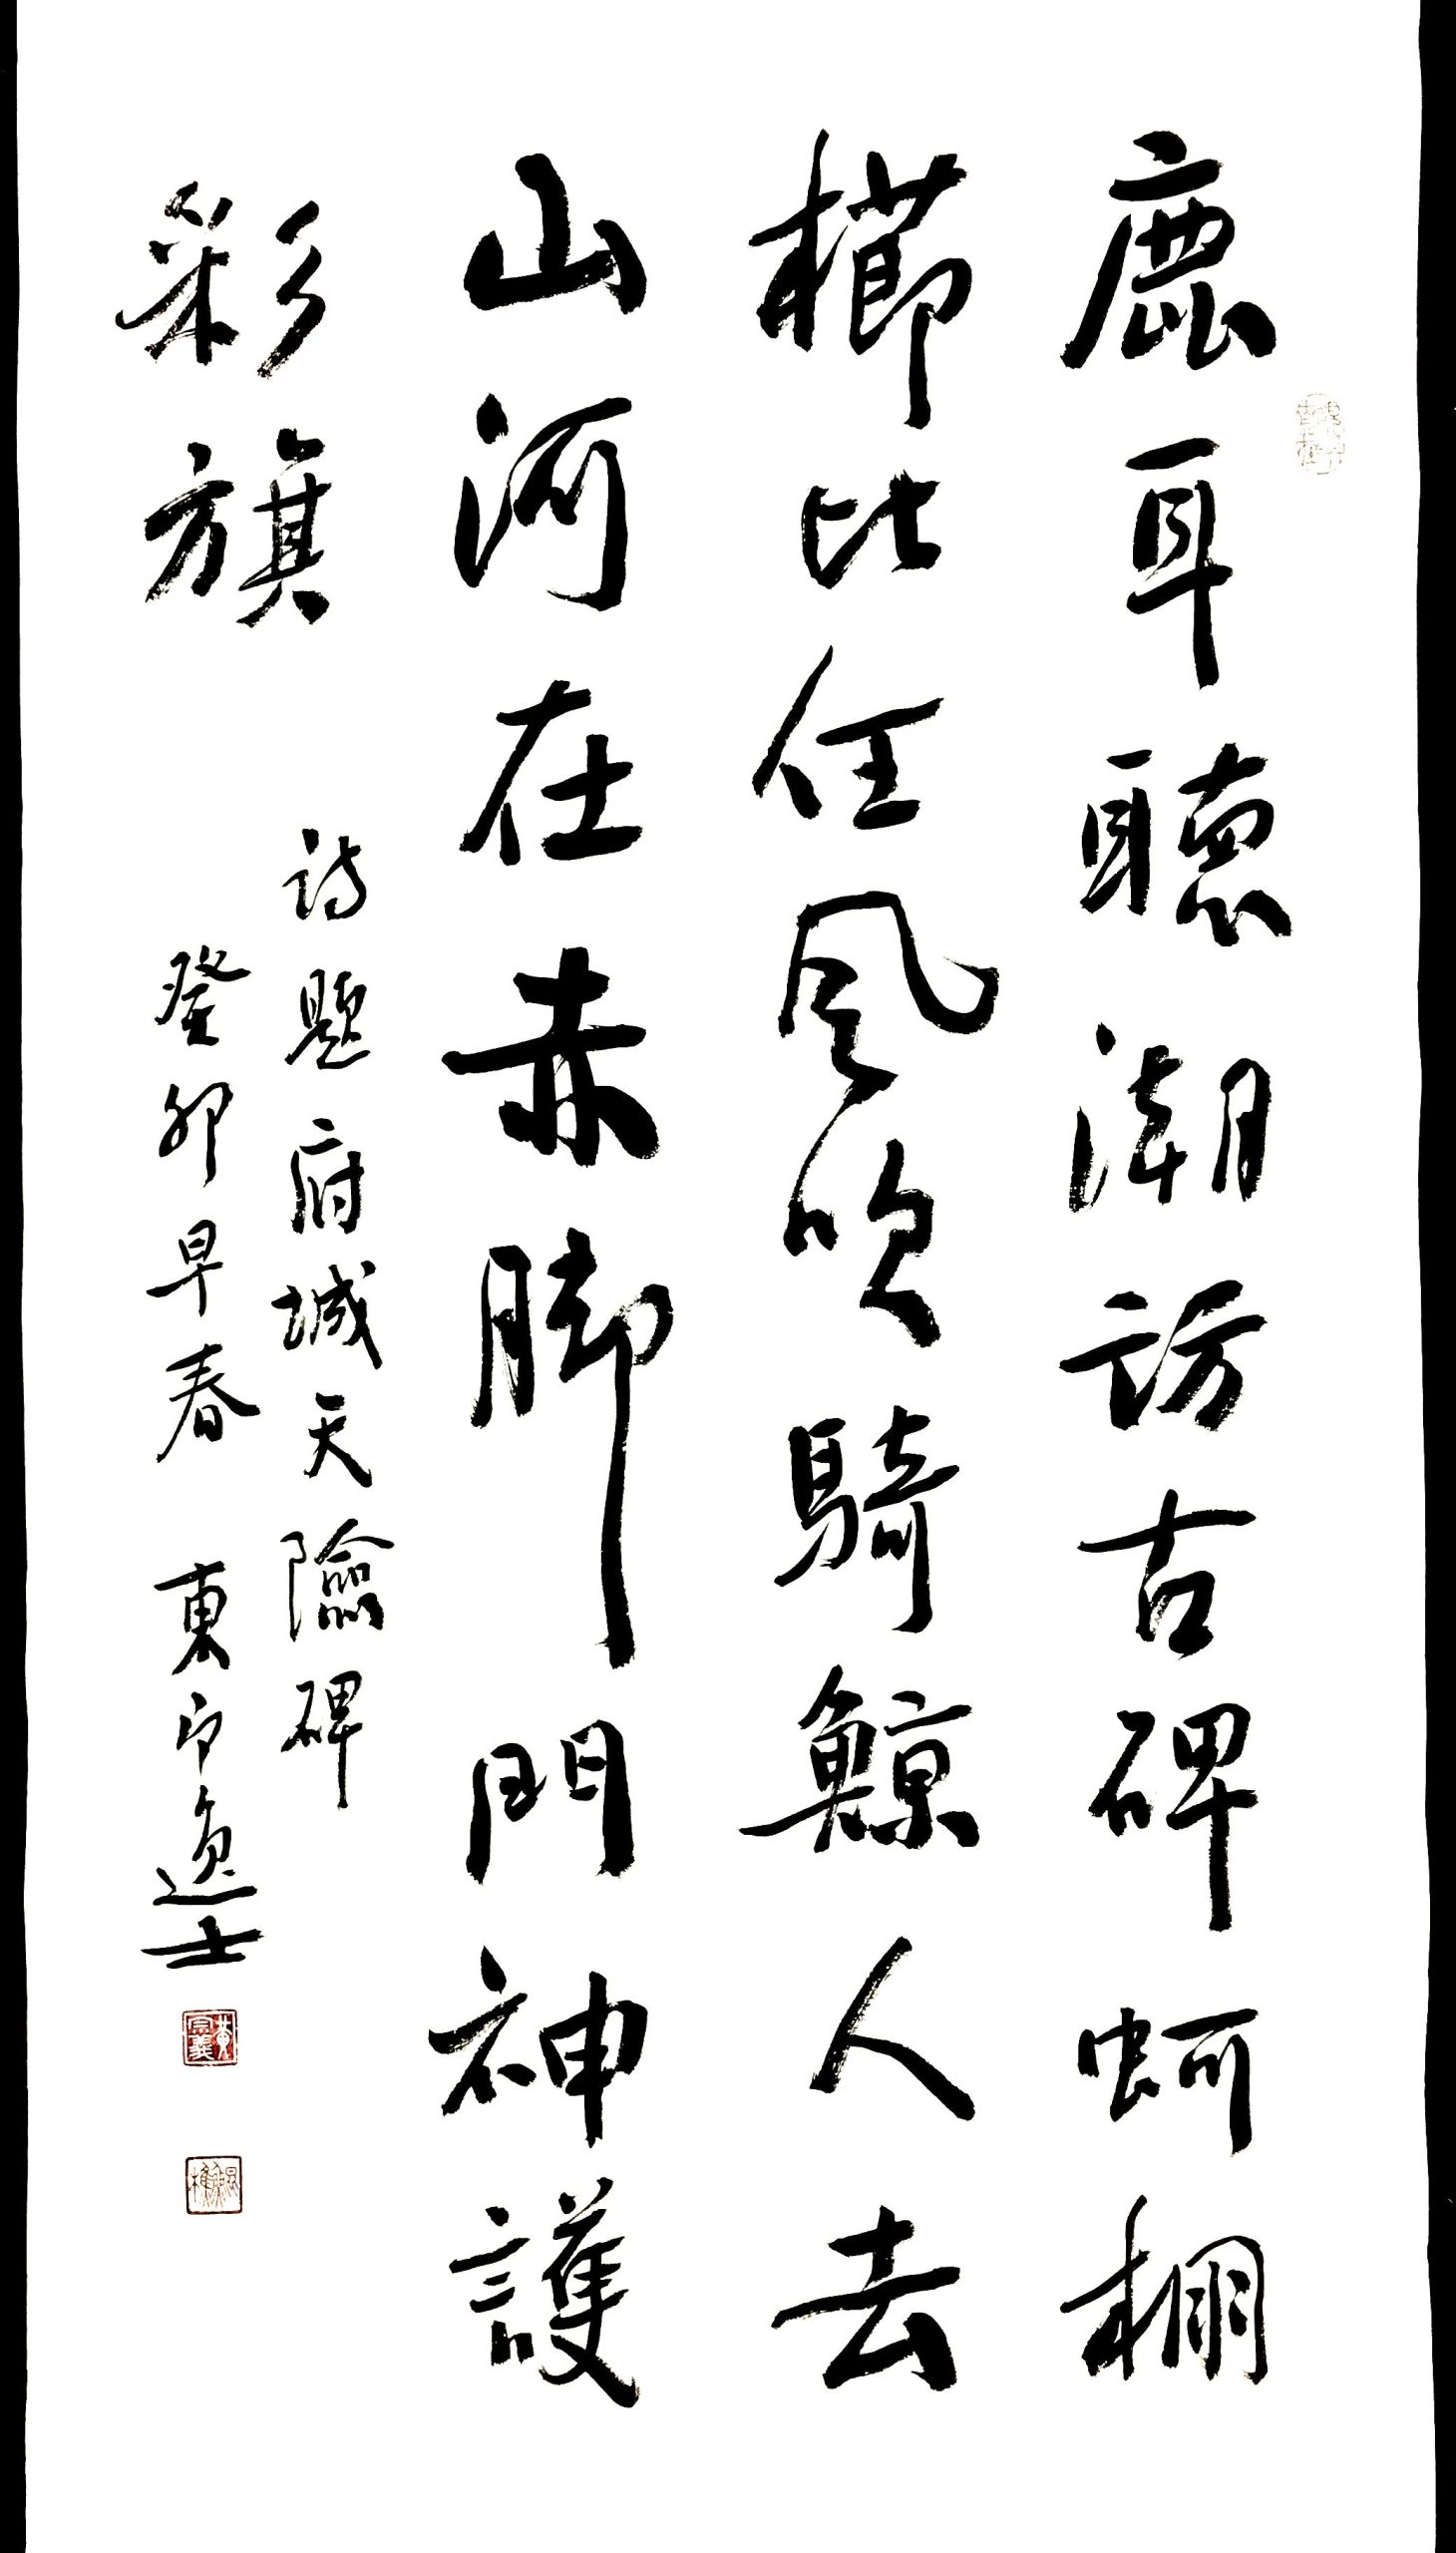 鹿耳聽潮訪古碑蚵棚
櫛比任風吹騎鯨人去
山河在赤脚門神護
彩旗
诗题府城天險碑
癸卯早春 東印逸士
黄宗義